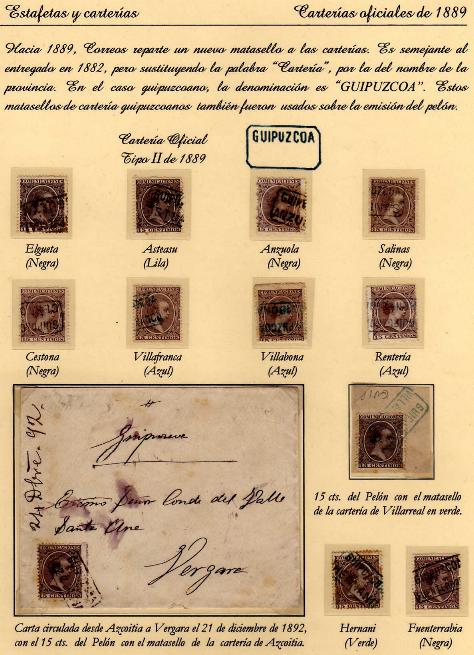 Estafetas y carterías
Carterías oficiales de 1889
Hacia 1889, Correos reparte un nuevo matasello a las carterías. Es semejante al
entregado en 1882, pero sustituyendo la palabra "Cartería", por la del nombre de la
provincia. En el caso guipuzcoano, la denominación es "GUIPUZCOA". Estos
matasellos de cartería guipuzcoanos también fueron usados sobre la emisión del pelón.
Cartería Oficial
Tipo II de 1889
GUIPUZCOA
COMUNICACIONES
15 CENTIMOS
Elgueta
(Negra)
COMUNICACIONES
15 CENTIMOS
Asteasu
(Lila)
COMUNICACIONES
15 CENTIMOS
Anzuola
(Negra)
15 CENTIMOS
Salinas
(Negra)
COMUNICACIONES
15 CENTIMOS
Cestona
(Negra)
15 CENTIMOS
Villafranca
(Azul)
15 CENTIMOS
Villabona
(Azul)
15 CENTIMOS
Rentería
(Azul)
Guipuzcoa
Conde del Valle
Santa
Vergara
COMUNICACIONES
Carta circulada desde Azcoitia a Vergara el 21 de diciembre de 1892,
con el 15 cts. del Pelón con el matasello de la cartería de Azcoitia.
COMUNICACIONES
15 CENTIMOS
15 cts. del Pelón con el matasello
de la cartería de Villarreal en verde.
15 CENTIMOS
Hernani
(Verde)
COMUNICACIONES
15 CENTIMOS
Fuenterrabia
(Negra)